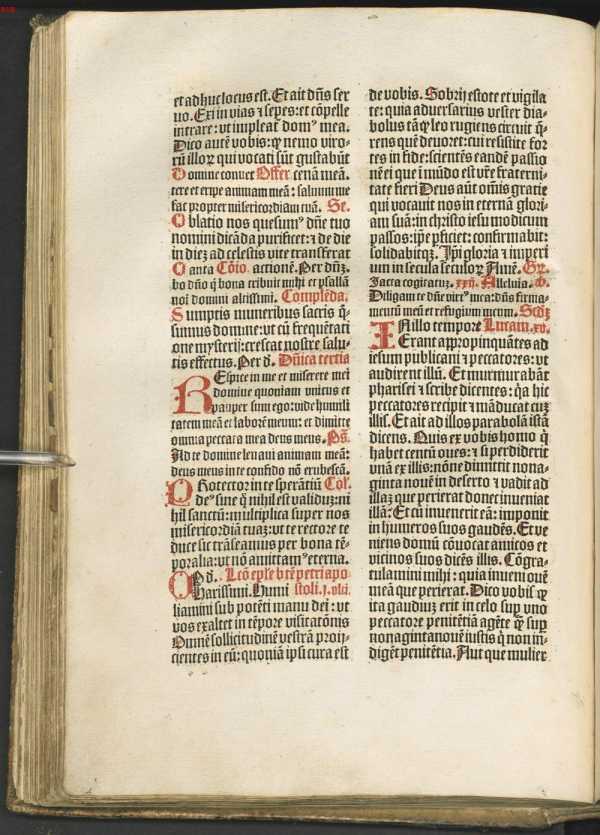 et adhuc locus est. Et ait dn̄s ser
uo. Exi in vias ⁊ sepes: et cōpelle
intrare: vt impleat̄ domꝰ mea.
Dico autē vobis: qꝫ nemo viro-
rū illoꝝ qui vocati sūt gustabūt
Domine conuet Offer. cenā meā.
tere et eripe animam meā: saluum me
fac propter misericordiam tuā. Se.
Oblatio nos quesumꝰ dn̄e tuo
nomini dicāda purificet: ⁊ de die
in diez ad celestis vite transferat
Canta Cōio. actionē. Per dn̄ꝫ.
bo dn̄o q̄ bona tribuit mihi et psallā
noī domini altissimi. Complēda.
Sumptis muneribus sacris q̄-
sumus domine: vt cū frequētati
one mysterij: crescat nostre salu-
tis effectus. Per d. Dn̄ica tertia
Respice in me et miserere mei
domine quoniam vnicus et
pauper sum ego: vide humili
tatem meā et laborē meum: et dimitte
omnia peccata mea deus meus. Ps̄.
Ad te domine leuaui animam meā:
deus meus in te confido nō erubescā.
Protector in te sperātiū Col.
deꝰ sine q̄ nihil est validuꝫ: ni
hil sanctū: multiplica super nos
misericordiā tuaꝫ: vt te rectore te
duce sic trāseamus per bona tē-
poralia: vt nō amittamꝰ eterna.
P d. Lcō epl̄e btē petri apo
Charissimi. Humi stoli. j. vlti.
liamini sub potēti manu dei: vt
vos exaltet in tēpore visitatōnis
Omnē sollicitudinē vestrā proij-
cientes in eū: quoniā ipsi cura est
de vobis. Sobrij estote et vigila
te: quia aduersarius vester dia-
bolus tāqꝫ leo rugiens circuit q̄-
rens quē deuoret: cui resistite for
tes in fide: scientēs eandē passio
nē ei que ī mūdo est vr̄e fraterni-
tate fieri Deus aūt om̄is gratie
qui vocauit nos in eternā glori-
am suā: in christo iesu modicum
passos: ip̄e ꝑficiet: confirmabit:
solidabitqꝫ. Ip̄i gloria ⁊ imperi
um in secula seculoꝝ Amē. Gr.
Jacta cogitatꝫ. xxij. Alleluia. V.
Diligam te dn̄e virtꝰ mea: dn̄s firma-
mentū meū et refugium meum. Scd̄ꝫ
IN illo tempore Lucam. xv.
Erant appropinquātes ad
iesum publicani ⁊ peccatores: vt
audirent illū. Et murmurabāt
pharisei ⁊ scribe dicentes: q̄a hic
peccatores recipit ⁊ māducat cuꝫ
illis. Et ait ad illos parabolā istā
dicens. Quis ex vobis homo q̄
habet centū oues: ⁊ si perdiderit
vnā ex illis: nōne dimittit nona-
ginta nouē in deserto ⁊ vadit ad
illaꝫ que perierat donec inueniat
illā: Et cū inuenerit eā: imponit
in humeros suos gaudēs. Et ve
niens domū cōuocat amicos et
vicinos suos dicēs illis. Cōgra-
tulamini mihi: quia inueni ouē
meā que perierat. Dico vobis qꝫ
ita gaudiuꝫ erit in celo suꝑ vno
peccatore penitētiā agēte qꝫ suꝑ
nonagintanouē iustis q̄ non in-
digēt penitētia. Aut que mulier